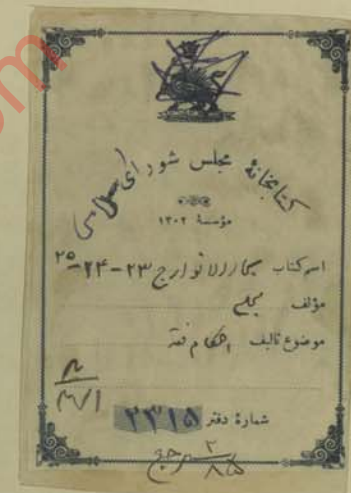 کتابخانهٔ مجلس شورای اسلامی
مؤسسهٔ ۱۳۰۲
اسم کتاب بحارالانوار ج ۲۳-۲۴-۲۵
مؤلف مجلسی
موضوع تالیف احکام فقه
شمارهٔ دفتر ۲۳۱۵